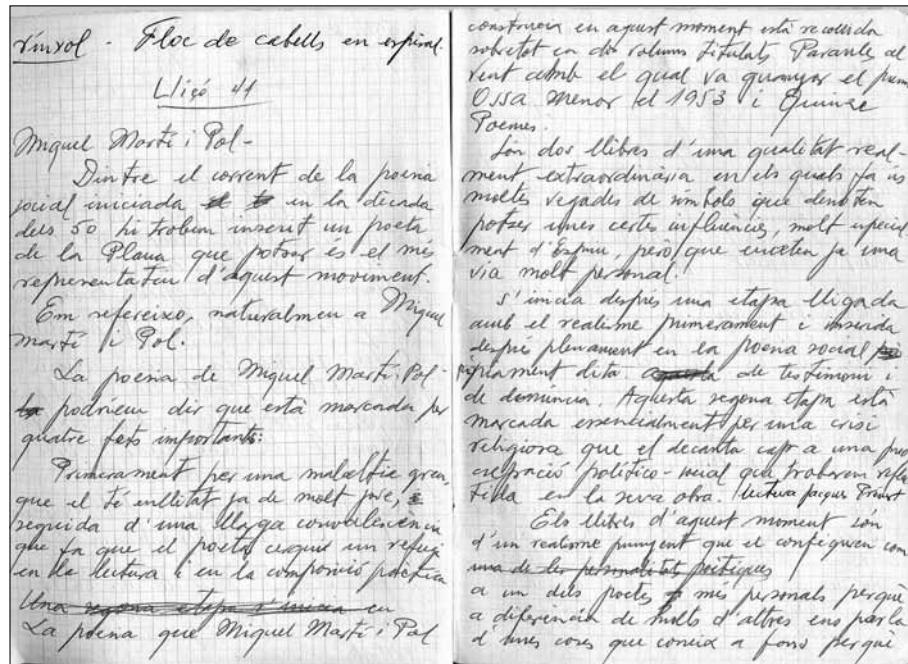 rínxol - Floc de cabells en espiral.
Lliçó 41
Miquel Martí i Pol-
Dintre el corrent de la poesia
social iniciada en la dècada
dels 50 hi trobem inserit un poeta
de la Plana que potser és el més
representatiu d'aquest moviment.
Em refereixo, naturalmen a Miquel
Martí i Pol.
La poesia de Miquel Martí i Pol-
podríem dir que està marcada per
quatre fets importants:
Primerament per una malaltia greu,
que el té enllitat ja de molt jove,
seguida d'una llarga convalescència
que fa que el poeta cerqui un refugi
en la lectura i en la composició poètica
Una segona etapa s'inicia en
La poesia que Miquel Martí i Pol
construeix en aquest moment està recollida
sobretot en dos volums titulats Paraules al
vent amb el qual va guanyar el premi
Ossa Menor el 1953 i Quinze
Poemes.
Són dos llibres d'una qualitat real-
ment extraordinària en els quals fa ús
moltes vegades de símbols que denoten
potser unes certes influències, molt especial
ment d'Espriu, però que enceten ja una
via molt personal.
S'inicia després una etapa lligada
amb el realisme primerament i inserida
després plenament en la poesia social
pròpiament dita de testimoni i
de denúncia. Aquesta segona etapa està
marcada essencialment per una crisi
religiosa que el decanta cap a una preo
cupació político-social que trobarem refle
tida en la seva obra. lectura Jacques Prévert
Els llibres d'aquest moment són
d'un realisme punyent que el configuren com
una de les personalitats poètiques
a un dels poetes més personals perquè
a diferència de molts d'altres ens parla
d'unes coses que coneix a fons perquè